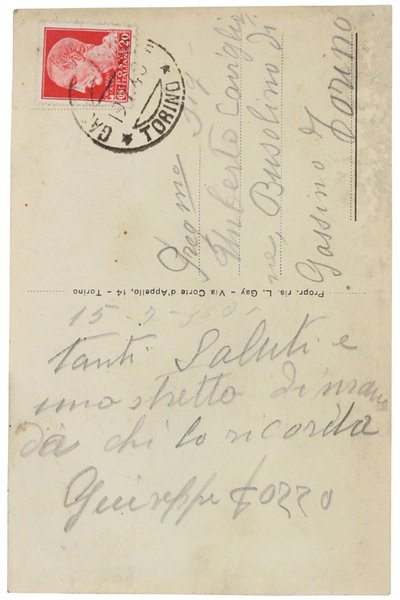 GA TORINO
20
Preg.mo Sg
Umberto Caviglio
ne, Busolino di
Gassino T
Torino
Propr. ris. L. Gay - Via Corte d'Appello, 14 - Torino
15
tanti Saluti e
una stretto di mano
da chi lo ricorda
Giuseppe Gozzo